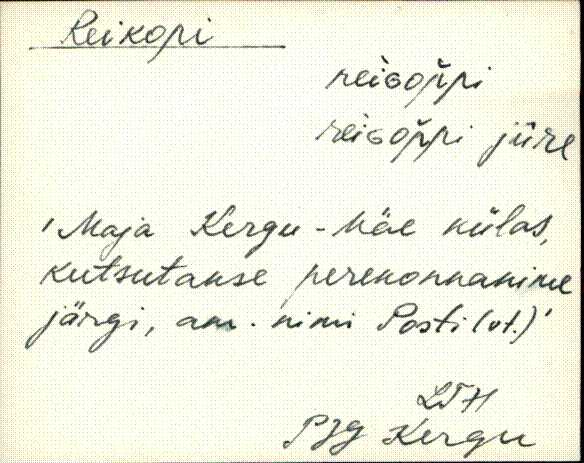 Reikopi
reiɢop̆pi
reiɢop̆pi jüre
'Maja Kergu-Mäe külas,
kutsutakse perekonnanime
järgi, am. nimi Posti (vt.)'
LTH
PJG Kergu